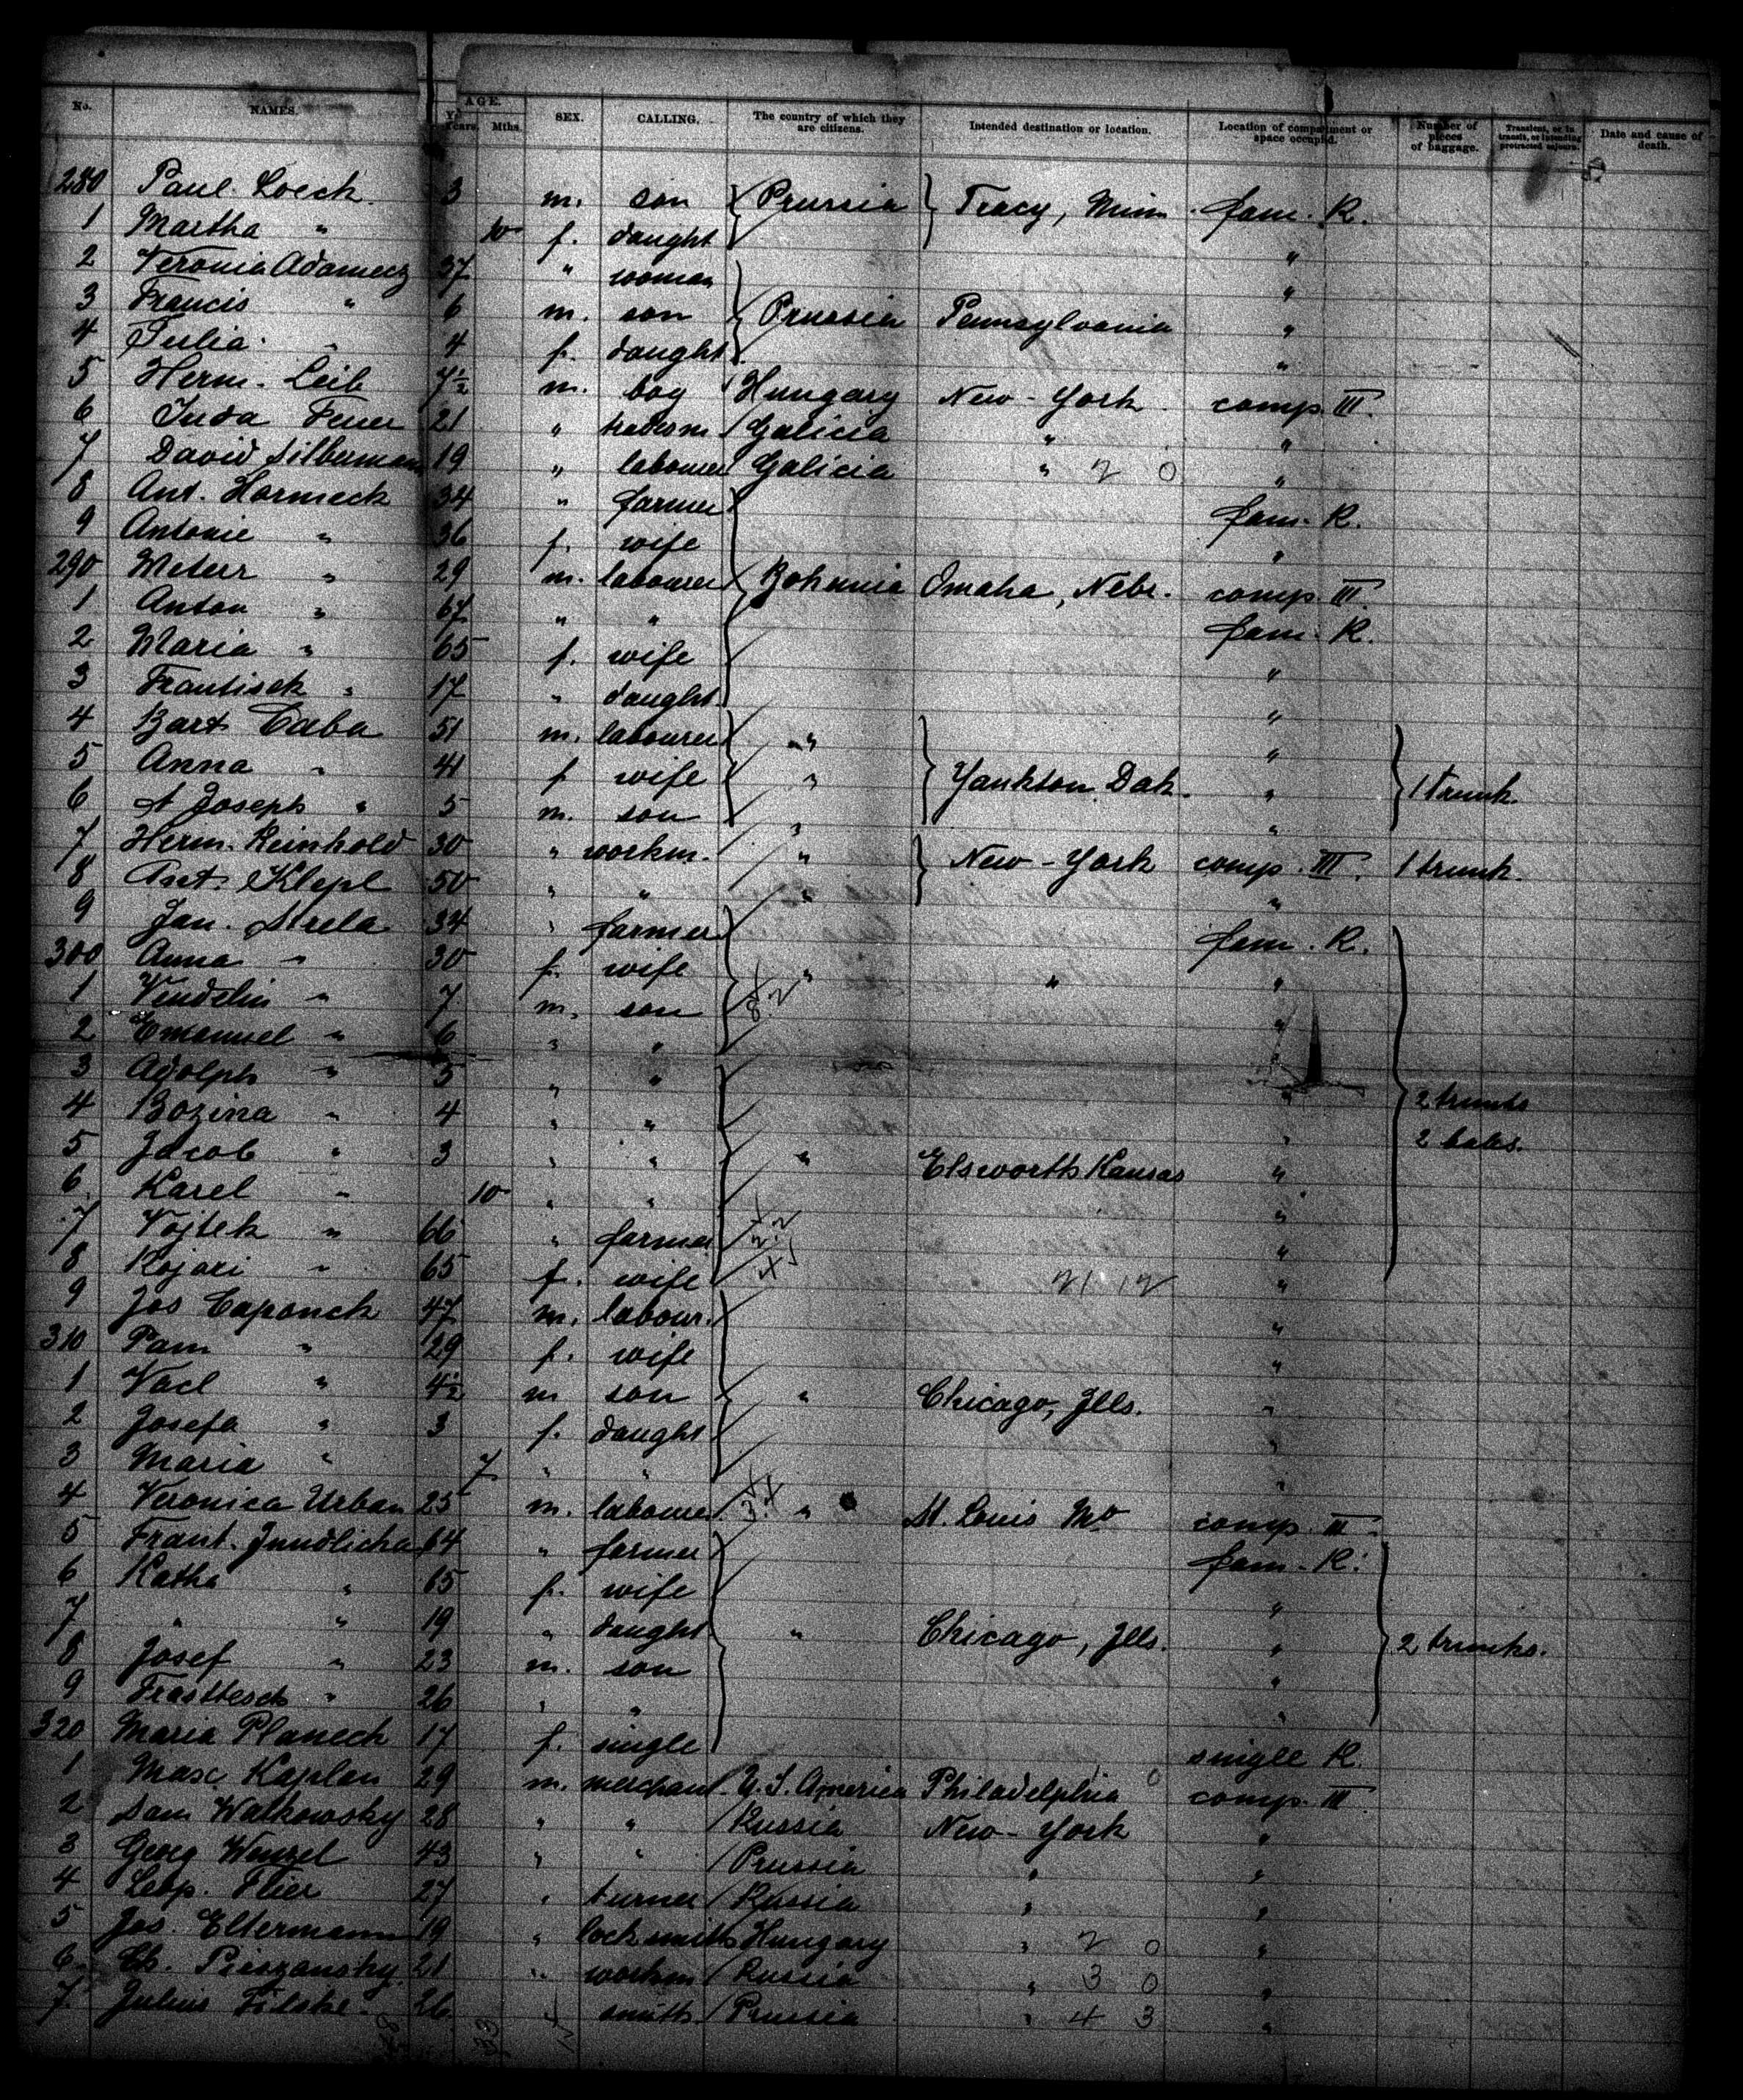 No. NAMES. AGE. Years. Mths. SEX. CALLING. The country of which they are citizens. Intended destination or location. Location of compartment or space occupied. Number of pieces of baggage. Transient, or in transit, or intending protracted sojourn. Date and cause of death.
280 Paul Loeck 3 m. son Prussia Tracy, Minn. fam. R.
1 Martha " 10 f. daught "
2 Veronia Adamecz 37 " woman "
3 Francis " 6 m. son Prussia Pennsylvania "
4 Julia " 4 f. daught "
5 Herm. Leib 7½ m. boy Hungary New-York comp. III.
6 Juda Feuer 21 " tradesm Galicia " "
7 David Silberman 19 " labourer Galicia " 2 0 "
8 Ant. Hormeck 34 " farmer fam. R.
9 Antonie " 36 f. wife "
290 " 29 m. labourer Bohemia Omaha, Nebr. comp. III.
1 Anton " 67 " " fam. R.
2 Maria " 65 f. wife "
3 Frantisek " 17 " daught. "
4 Bart Caba 51 m. labourer " "
5 Anna " 41 f wife " Yankton Dak. " 1 trunk.
6 Joseph " 5 m. son " "
7 Herm. Reinhold 30 " workm. " New-York comp. III. 1 trunk.
8 Ant. Klepl 50 " " " "
9 Jan. Strela 34 " farmer fam. R.
300 Anna " 30 f. wife " " "
1 Vendelin " 7 m. son "
2 Emanuel " 6 " " "
3 Adolph " 5 " " "
4 Bozina " 4 " " " 2 trunks
5 Jacob " 3 " " " Elsworth Kansas " 2 bales.
6 Karel " 10 " " "
7 Vojtek " 66 " farmer "
8 Kojari " 65 f. wife 21 12 "
9 Jos Caponek 47 m. labour. "
310 " 29 f. wife "
1 Vacl " 4½ m son " Chicago, Ills. "
2 Josefa " 3 f. daught "
3 Maria " 7 " " "
4 Veronica Urban 25 m. labourer " St. Louis Mo comp. III.
5 Frant. Jundlicha 64 " farmer fam. R.
6 Katha " 65 f. wife "
7 " " 19 " daught " Chicago, Ills. " 2 trunks.
8 Josef " 23 m. son "
9 " 26 " " "
320 Maria Planech 17 f. single single R.
1 Max Kaplan 29 m. merchant U. S. America Philadelphia 0 comp. III
2 Sam Watkowsky 28 " " Russia New-York "
3 Georg Wenzel 43 " " Prussia " "
4 Leop. Flier 27 " turner Russia " "
5 Jos. Eltermann 19 " locksmith Hungary " 2 0 "
6 21 " workm Russia " 3 0 "
7 Julius Filske 26 " smith Prussia " 4 3 "